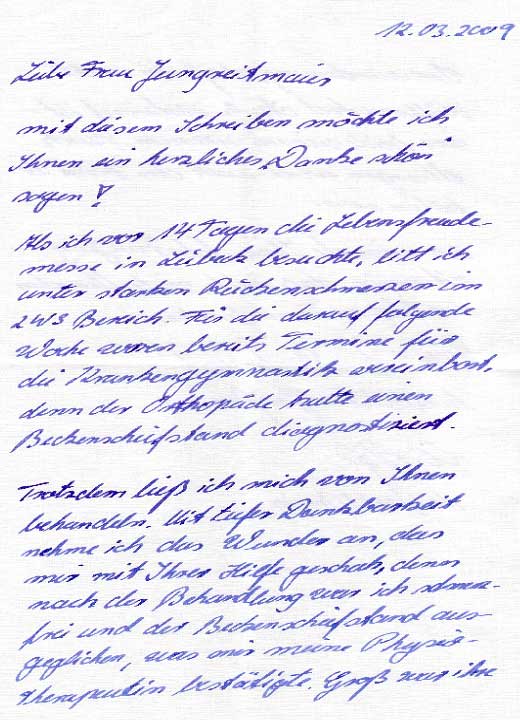 12.03.2009
Liebe Frau Jungreitmair
mit diesem Schreiben möchte ich
Ihnen ein herzliches "Danke schön"
sagen!
Als ich vor 14 Tagen die Lebensfreude-
messe in Lübeck besuchte, litt ich
unter starken Rückenschmerzen im
LWS Bereich. Für die darauf folgende
Woche waren bereits Termine für
die Krankengymnastik vereinbart,
denn der Orthopäde hatte einen
Beckenschiefstand diagnostiziert.
Trotzdem ließ ich mich von Ihnen
behandeln. Mit tiefer Dankbarkeit
nehme ich das Wunder an, das
mir mit Ihrer Hilfe geschah, denn
nach der Behandlung war ich schmerz-
frei und der Beckenschiefstand aus-
geglichen, was mir meine Physio-
therapeutin bestätigte. Groß war ihre